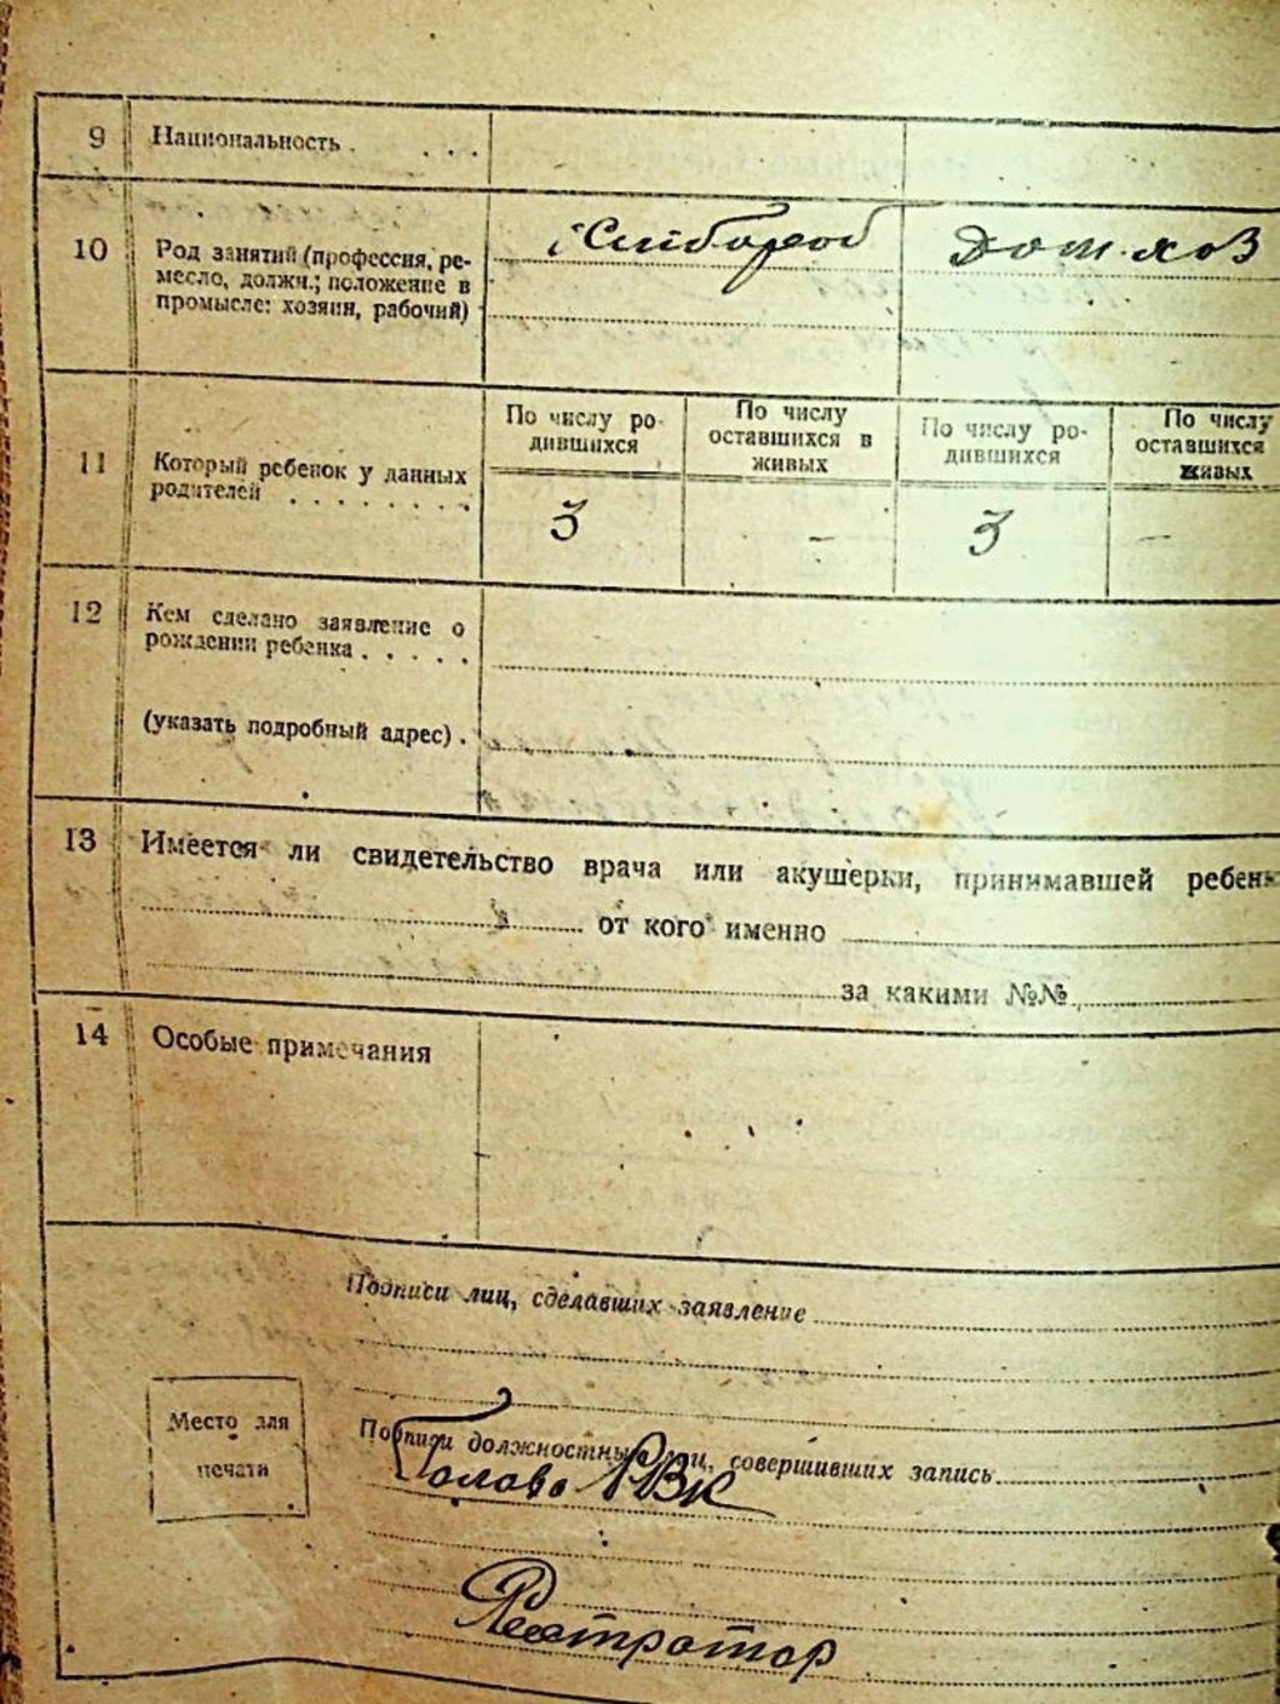 9 Национальность . . . .
10 Род занятий (профессия, ре-
месло, должн.; положение в
промысле: хозяин, рабочий)
дом. хоз
11 Который ребенок у данных
родителей . . . . . . . .
По числу ро-
дившихся
По числу
оставшихся в
живых
По числу ро-
дившихся
По числу
оставшихся
живых
3 - 3 -
12 Кем сделано заявление о
рождении ребенка . . . . .
(указать подробный адрес) .
13 Имеется ли свидетельство врача или акушерки, принимавшей ребен
от кого именно
за какими №№
14 Особые примечания
Подписи лиц, сделавших заявление
Место для
печати
Подписи должностных лиц, совершивших запись
Голова РВК
Реєстратор